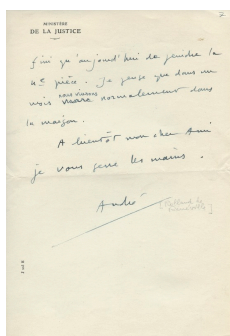 MINISTÈRE
DE LA JUSTICE
fini qu'aujourd'hui de peindre la
4e pièce. Je pense que dans un
mois nous vivrons normalement dans
la maison.
A bientôt mon cher Ami
je vous serre les mains.
André